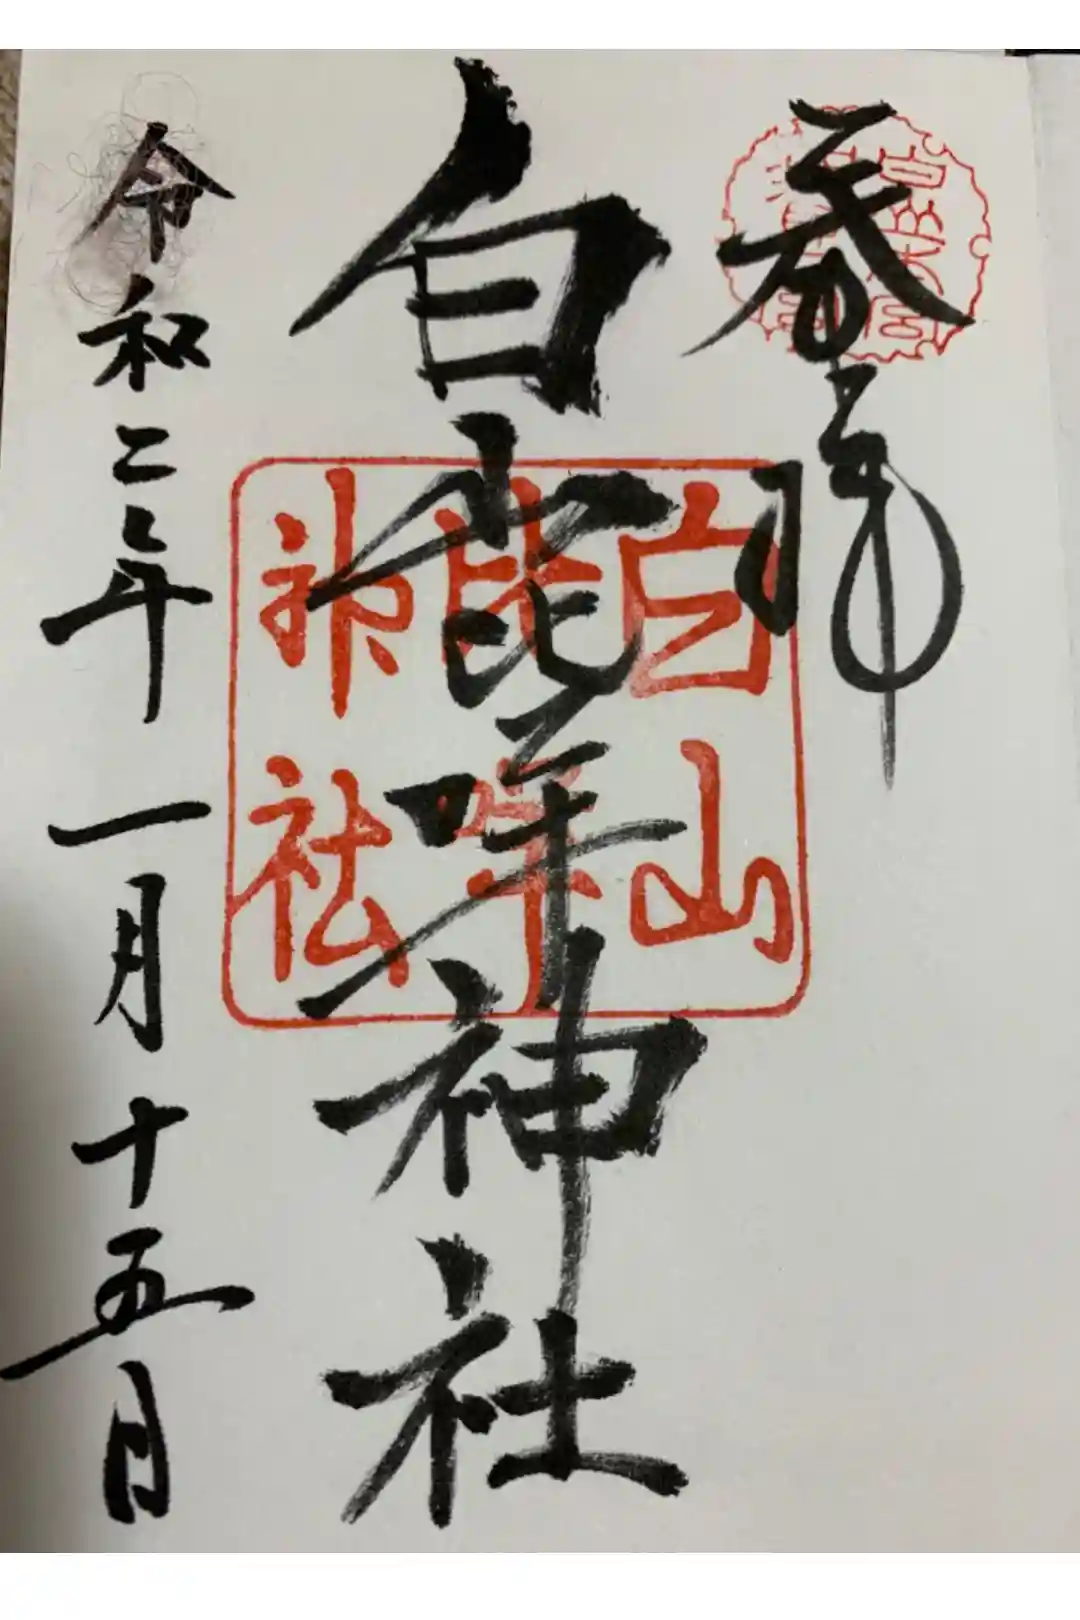 奉拝
白山比咩神社
令和二年一月十五日
白山
比咩
神社